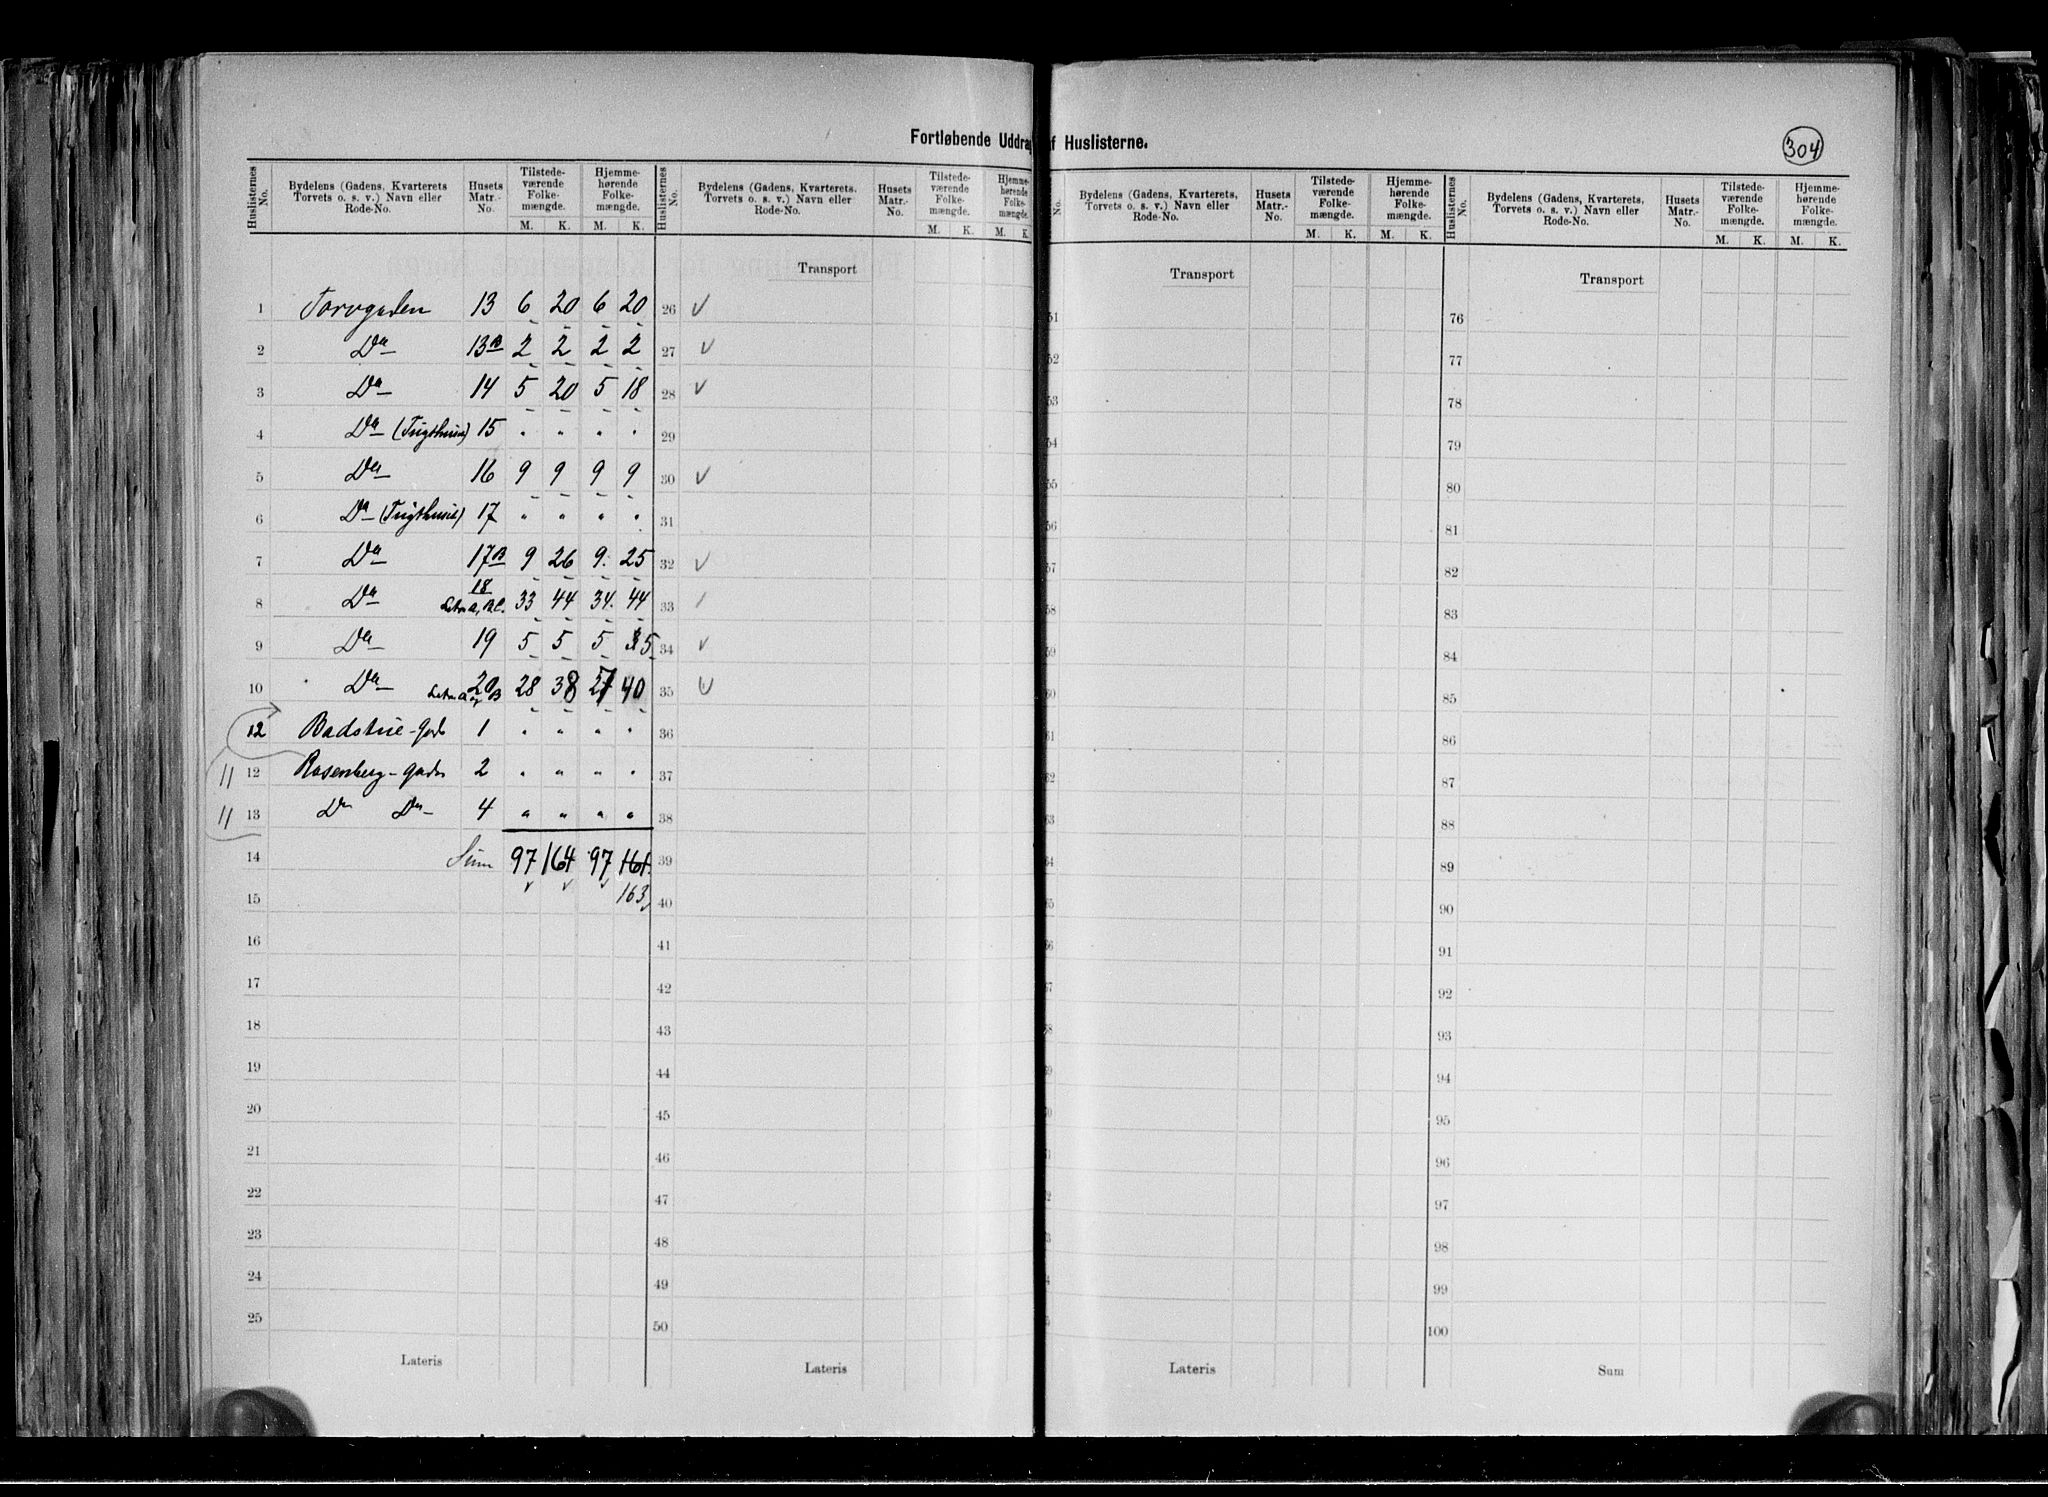 Fortløbende Uddra f Huslisterne.
304
Huslisternes No.
Bydelens (Gadens, Kvarterets Torvets o. s. v.) Navn eller Rode-No.
Husets Matr.-No.
Tilstede-værende Folke-mængde.
Hjemme-hørende Folke-mængde.
M. K. M. K.
Huslisternes No.
Bydelens (Gadens, Kvarterets, Torvets o. s. v.) Navn eller Rode-No.
Husets Matr.-No.
Tilstede-værende Folke-mængde.
Hjemme-hørende Folke-mængde.
M. K. M. K.
No.
Bydelens (Gadens, Kvarterets, Torvets o. s. v.) Navn eller Rode-No.
Husets Matr.-No.
Tilstede-værende Folke-mængde.
Hjemme-hørende Folke-mængde.
M. K. M. K.
Huslisternes No.
Bydelens (Gadens, Kvarterets, Torvets o. s. v.) Navn eller Rode-No.
Husets Matr.-No.
Tilstede-værende Folke-mængde.
Hjemme-hørende Folke-mængde.
M. K. M. K.
1 Torvgaden 13 6 20 6 20
2 Do 13B 2 2 2 2
3 Do 14 5 20 5 18
4 Do (Tugthuset) 15 " " " "
5 Do 16 9 9 9 9
6 Do (Tugthuset) 17 " " " "
7 Do 17B 9 26 9 25
8 Do 18 Litra A, B, C. 33 44 34 44
9 Do 19 5 5 5 5
10 Do 20 Litra A og B 28 38 27 40
12 Badstue-Gade 1 " " " "
11 12 Rosenberg-Gade 2 " " " "
11 13 Do Do 4 " " " "
14 Sum 97 164 97 161
15 163
16
17
18
19
20
21
22
23
24
25
Lateris
Transport
26
27
28
29
30
31
32
33
34
35
36
37
38
39
40
41
42
43
44
45
46
47
48
49
50
Lateris
Transport
51
52
53
54
55
56
57
58
59
60
62
63
64
65
66
67
68
69
Lateris
Transport
76
77
78
79
80
81
82
83
84
85
86
87
88
89
90
91
92
93
94
95
96
97
98
99
100
Sum